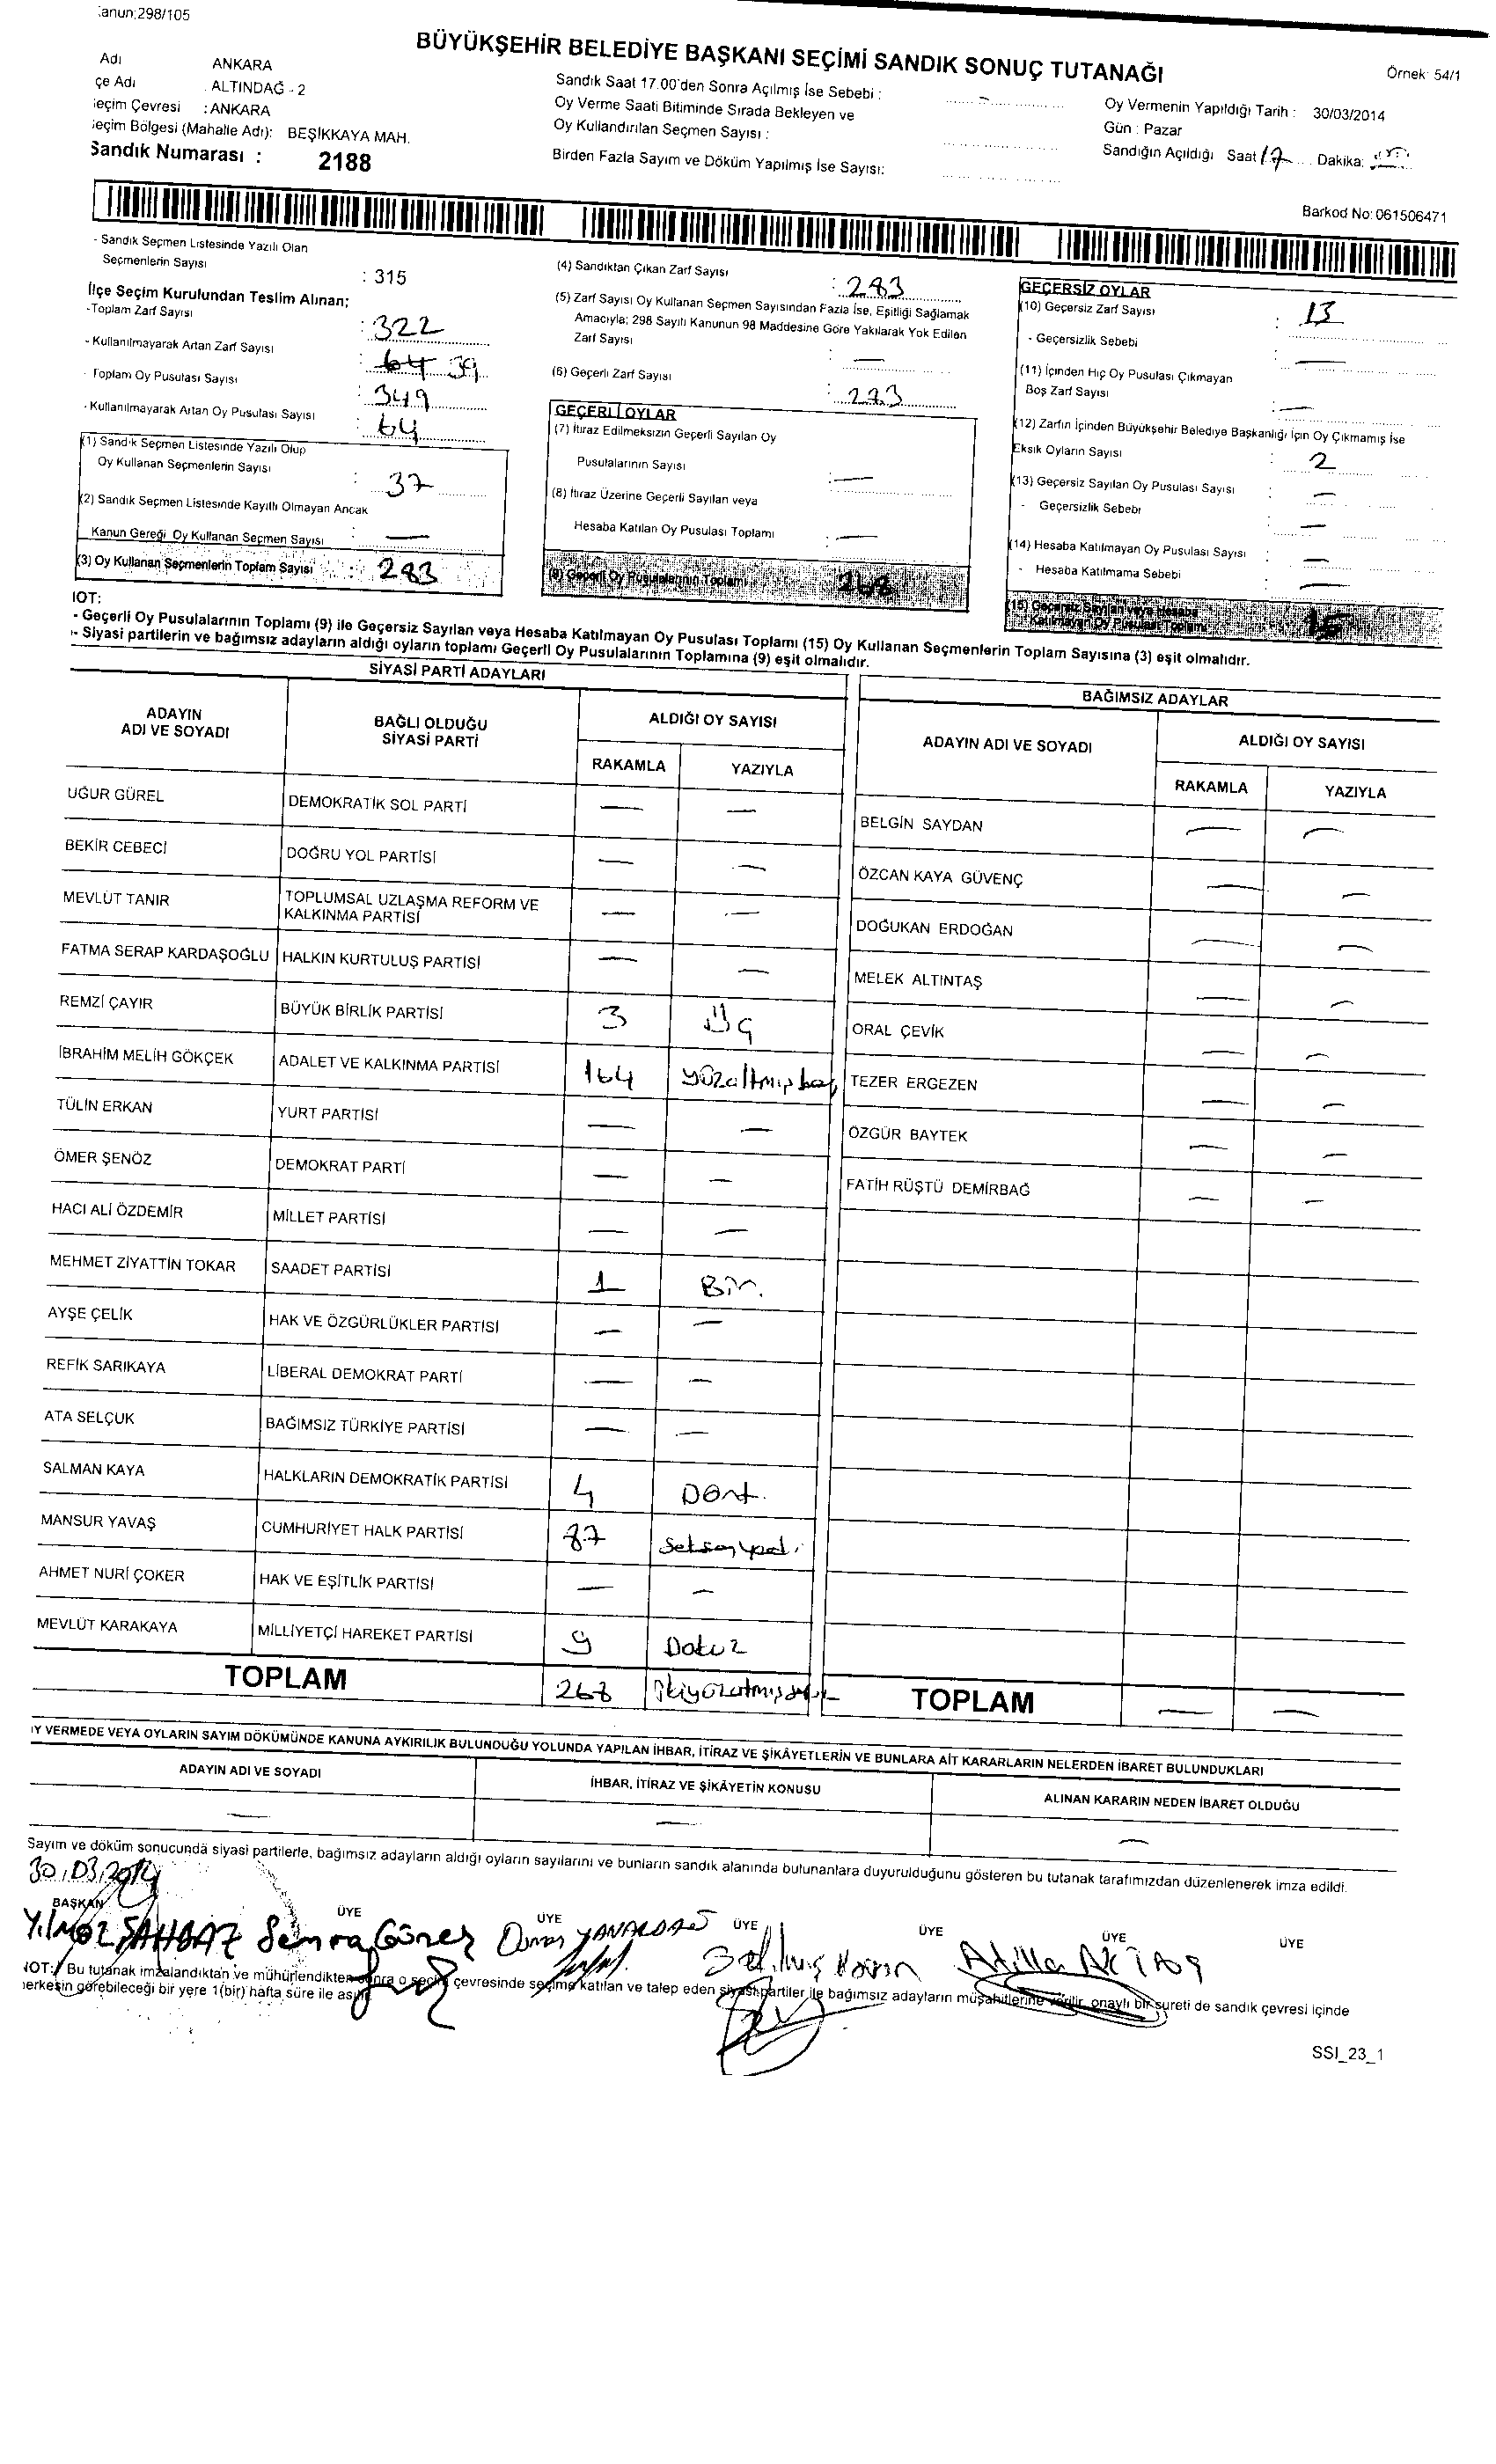 anun:298/105
BÜYÜKŞEHİR BELEDİYE BAŞKANI SEÇİMİ SANDIK SONUÇ TUTANAĞI
Örnek: 54/1
Adı ANKARA
çe Adı . ALTINDAĞ - 2
eçim Çevresi : ANKARA
eçim Bölgesi (Mahalle Adı): BEŞİKKAYA MAH.
Sandık Numarası : 2188
Sandık Saat 17.00'den Sonra Açılmış İse Sebebi :
Oy Verme Saati Bitiminde Sırada Bekleyen ve
Oy Kullandırılan Seçmen Sayısı :
Birden Fazla Sayım ve Döküm Yapılmış İse Sayısı:
Oy Vermenin Yapıldığı Tarih : 30/03/2014
Gün : Pazar
Sandığın Açıldığı Saat 17 Dakika:
Barkod No: 061506471
- Sandık Seçmen Listesinde Yazılı Olan
Seçmenlerin Sayısı : 315
İlçe Seçim Kurulundan Teslim Alınan;
-Toplam Zarf Sayısı : 322
- Kullanılmayarak Artan Zarf Sayısı : 64 39
- Toplam Oy Pusulası Sayısı : 349
- Kullanılmayarak Artan Oy Pusulası Sayısı : 64
(1) Sandık Seçmen Listesinde Yazılı Olup
Oy Kullanan Seçmenlerin Sayısı : 37
(2) Sandık Seçmen Listesinde Kayıtlı Olmayan Ancak
Kanun Gereği Oy Kullanan Seçmen Sayısı : —
(3) Oy Kullanan Seçmenlerin Toplam Sayısı : 283
(4) Sandıktan Çıkan Zarf Sayısı : 283
(5) Zarf Sayısı Oy Kullanan Seçmen Sayısından Fazla İse, Eşitliği Sağlamak
Amacıyla; 298 Sayılı Kanunun 98 Maddesine Göre Yakılarak Yok Edilen
Zarf Sayısı : —
(6) Geçerli Zarf Sayısı : 273
GEÇERLİ OYLAR
(7) İtiraz Edilmeksizin Geçerli Sayılan Oy
Pusulalarının Sayısı : —
(8) İtiraz Üzerine Geçerli Sayılan veya
Hesaba Katılan Oy Pusulası Toplamı : —
(9) Geçerli Oy Pusulalarının Toplamı 268
GEÇERSİZ OYLAR
(10) Geçersiz Zarf Sayısı : 13
- Geçersizlik Sebebi : —
(11) İçinden Hiç Oy Pusulası Çıkmayan
Boş Zarf Sayısı : —
(12) Zarfın İçinden Büyükşehir Belediye Başkanlığı İçin Oy Çıkmamış İse
Eksik Oyların Sayısı : 2
(13) Geçersiz Sayılan Oy Pusulası Sayısı : —
- Geçersizlik Sebebi : —
(14) Hesaba Katılmayan Oy Pusulası Sayısı : —
- Hesaba Katılmama Sebebi : —
(15) Geçersiz Sayılan veya Hesaba
Katılmayan Oy Pusulası Toplamı 15
IOT:
- Geçerli Oy Pusulalarının Toplamı (9) ile Geçersiz Sayılan veya Hesaba Katılmayan Oy Pusulası Toplamı (15) Oy Kullanan Seçmenlerin Toplam Sayısına (3) eşit olmalıdır.
- Siyasi partilerin ve bağımsız adayların aldığı oyların toplamı Geçerli Oy Pusulalarının Toplamına (9) eşit olmalıdır.
SİYASİ PARTİ ADAYLARI
ADAYIN ADI VE SOYADI BAĞLI OLDUĞU SİYASİ PARTİ ALDIĞI OY SAYISI
RAKAMLA YAZIYLA
UĞUR GÜREL DEMOKRATİK SOL PARTİ — —
BEKİR CEBECİ DOĞRU YOL PARTİSİ — —
MEVLÜT TANIR TOPLUMSAL UZLAŞMA REFORM VE KALKINMA PARTİSİ — —
FATMA SERAP KARDAŞOĞLU HALKIN KURTULUŞ PARTİSİ — —
REMZİ ÇAYIR BÜYÜK BİRLİK PARTİSİ 3 Üç
İBRAHİM MELİH GÖKÇEK ADALET VE KALKINMA PARTİSİ 164 yüzaltmış
TÜLİN ERKAN YURT PARTİSİ — —
ÖMER ŞENÖZ DEMOKRAT PARTİ — —
HACI ALİ ÖZDEMİR MİLLET PARTİSİ — —
MEHMET ZİYATTİN TOKAR SAADET PARTİSİ 1 Bir.
AYŞE ÇELİK HAK VE ÖZGÜRLÜKLER PARTİSİ — —
REFİK SARIKAYA LİBERAL DEMOKRAT PARTİ — —
ATA SELÇUK BAĞIMSIZ TÜRKİYE PARTİSİ — —
SALMAN KAYA HALKLARIN DEMOKRATİK PARTİSİ 4 Dört.
MANSUR YAVAŞ CUMHURİYET HALK PARTİSİ 87 Seksenyedi
AHMET NURİ ÇOKER HAK VE EŞİTLİK PARTİSİ — —
MEVLÜT KARAKAYA MİLLİYETÇİ HAREKET PARTİSİ 9 Dokuz
TOPLAM 268
BAĞIMSIZ ADAYLAR
ADAYIN ADI VE SOYADI ALDIĞI OY SAYISI
RAKAMLA YAZIYLA
BELGİN SAYDAN — —
ÖZCAN KAYA GÜVENÇ — —
DOĞUKAN ERDOĞAN — —
MELEK ALTINTAŞ — —
ORAL ÇEVİK — —
TEZER ERGEZEN — —
ÖZGÜR BAYTEK — —
FATİH RÜŞTÜ DEMİRBAĞ — —
TOPLAM — —
Y VERMEDE VEYA OYLARIN SAYIM DÖKÜMÜNDE KANUNA AYKIRILIK BULUNDUĞU YOLUNDA YAPILAN İHBAR, İTİRAZ VE ŞİKÂYETLERİN VE BUNLARA AİT KARARLARIN NELERDEN İBARET BULUNDUKLARI
ADAYIN ADI VE SOYADI İHBAR, İTİRAZ VE ŞİKÂYETİN KONUSU ALINAN KARARIN NEDEN İBARET OLDUĞU
— — —
Sayım ve döküm sonucunda siyasi partilerle, bağımsız adayların aldığı oyların sayılarını ve bunların sandık alanında bulunanlara duyurulduğunu gösteren bu tutanak tarafımızdan düzenlenerek imza edildi.
30.03.2014
BAŞKAN ÜYE ÜYE ÜYE ÜYE ÜYE ÜYE
YILMAZ ŞAHBAZ Semra Güneş YANARDAĞ Atilla AKTAŞ
IOT: Bu tutanak imzalandıktan ve mühürlendikten sonra o seçim çevresinde seçime katılan ve talep eden siyasi partiler ile bağımsız adayların müşahitlerine verilir, onaylı bir sureti de sandık çevresi içinde
erkesin görebileceği bir yere 1(bir) hafta süre ile asılır.
SSI_23_1